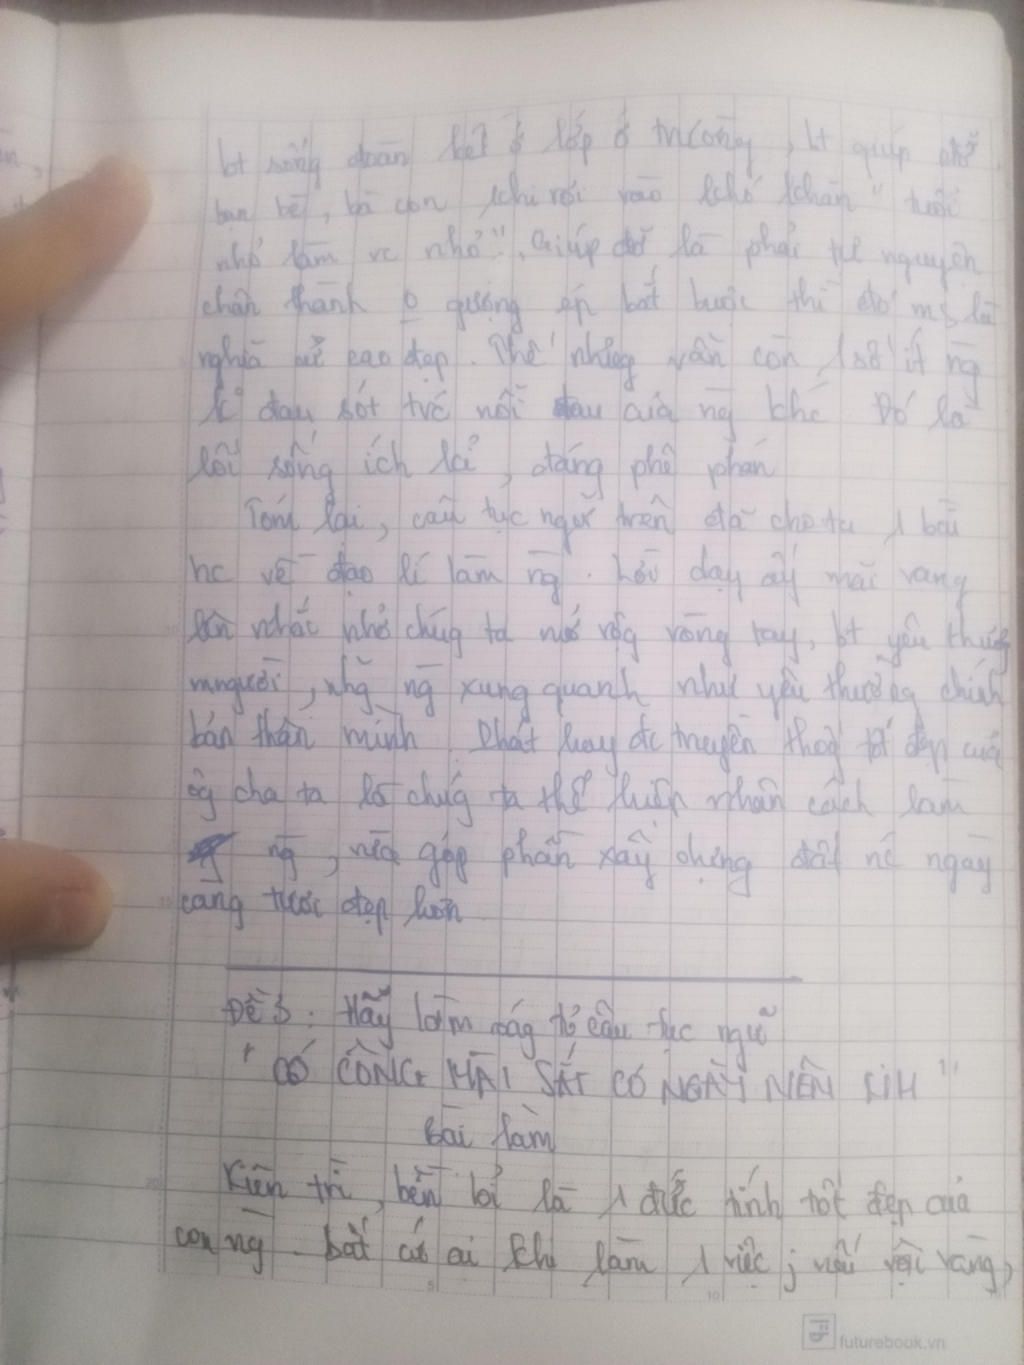 bt sống đoàn kết ở lớp ở trường, bt giúp đỡ
bạn bè, bà con khi rơi vào khó khăn "tuổi
nhỏ làm vc nhỏ". Giúp đỡ là phải tự nguyện
chân thành o gượng ép bắt buộc thì đó ms là
nghĩa cử cao đẹp. Thế nhưng vẫn còn 1 số ít ng̅
đau xót trc nỗi đau của ng̅ khc. Đó là
lối sống ích kỉ, đáng phê phán
Tóm lại, câu tục ngữ trên đã cho ta 1 bài
hc về đạo lí làm ng̅. Lời dạy ấy mãi vang
lên nhắc nhở chúg ta mở rộg vòng tay, bt yêu thươg
mngười, nhg̅ ng̅ xung quanh như yêu thương chính
bản thân mình. Phát huy đc truyền thốg tốt đẹp của
ôg cha ta là chúg ta thể hiện nhân cách làm
ng̅, góp phần xây dựng đất nc ngày
càng tươi đẹp hơn
Đề 3: Hãy làm ság tỏ câu tục ngữ
" CÓ CÔNG MÀI SẮT CÓ NGÀY NÊN KIM "
Bài làm
Kiên trì, bền bỉ là 1 đức tính tốt đẹp của
con ng̅. bất cứ ai khi làm 1 việc j nếu vội vàng,
futurebook.vn